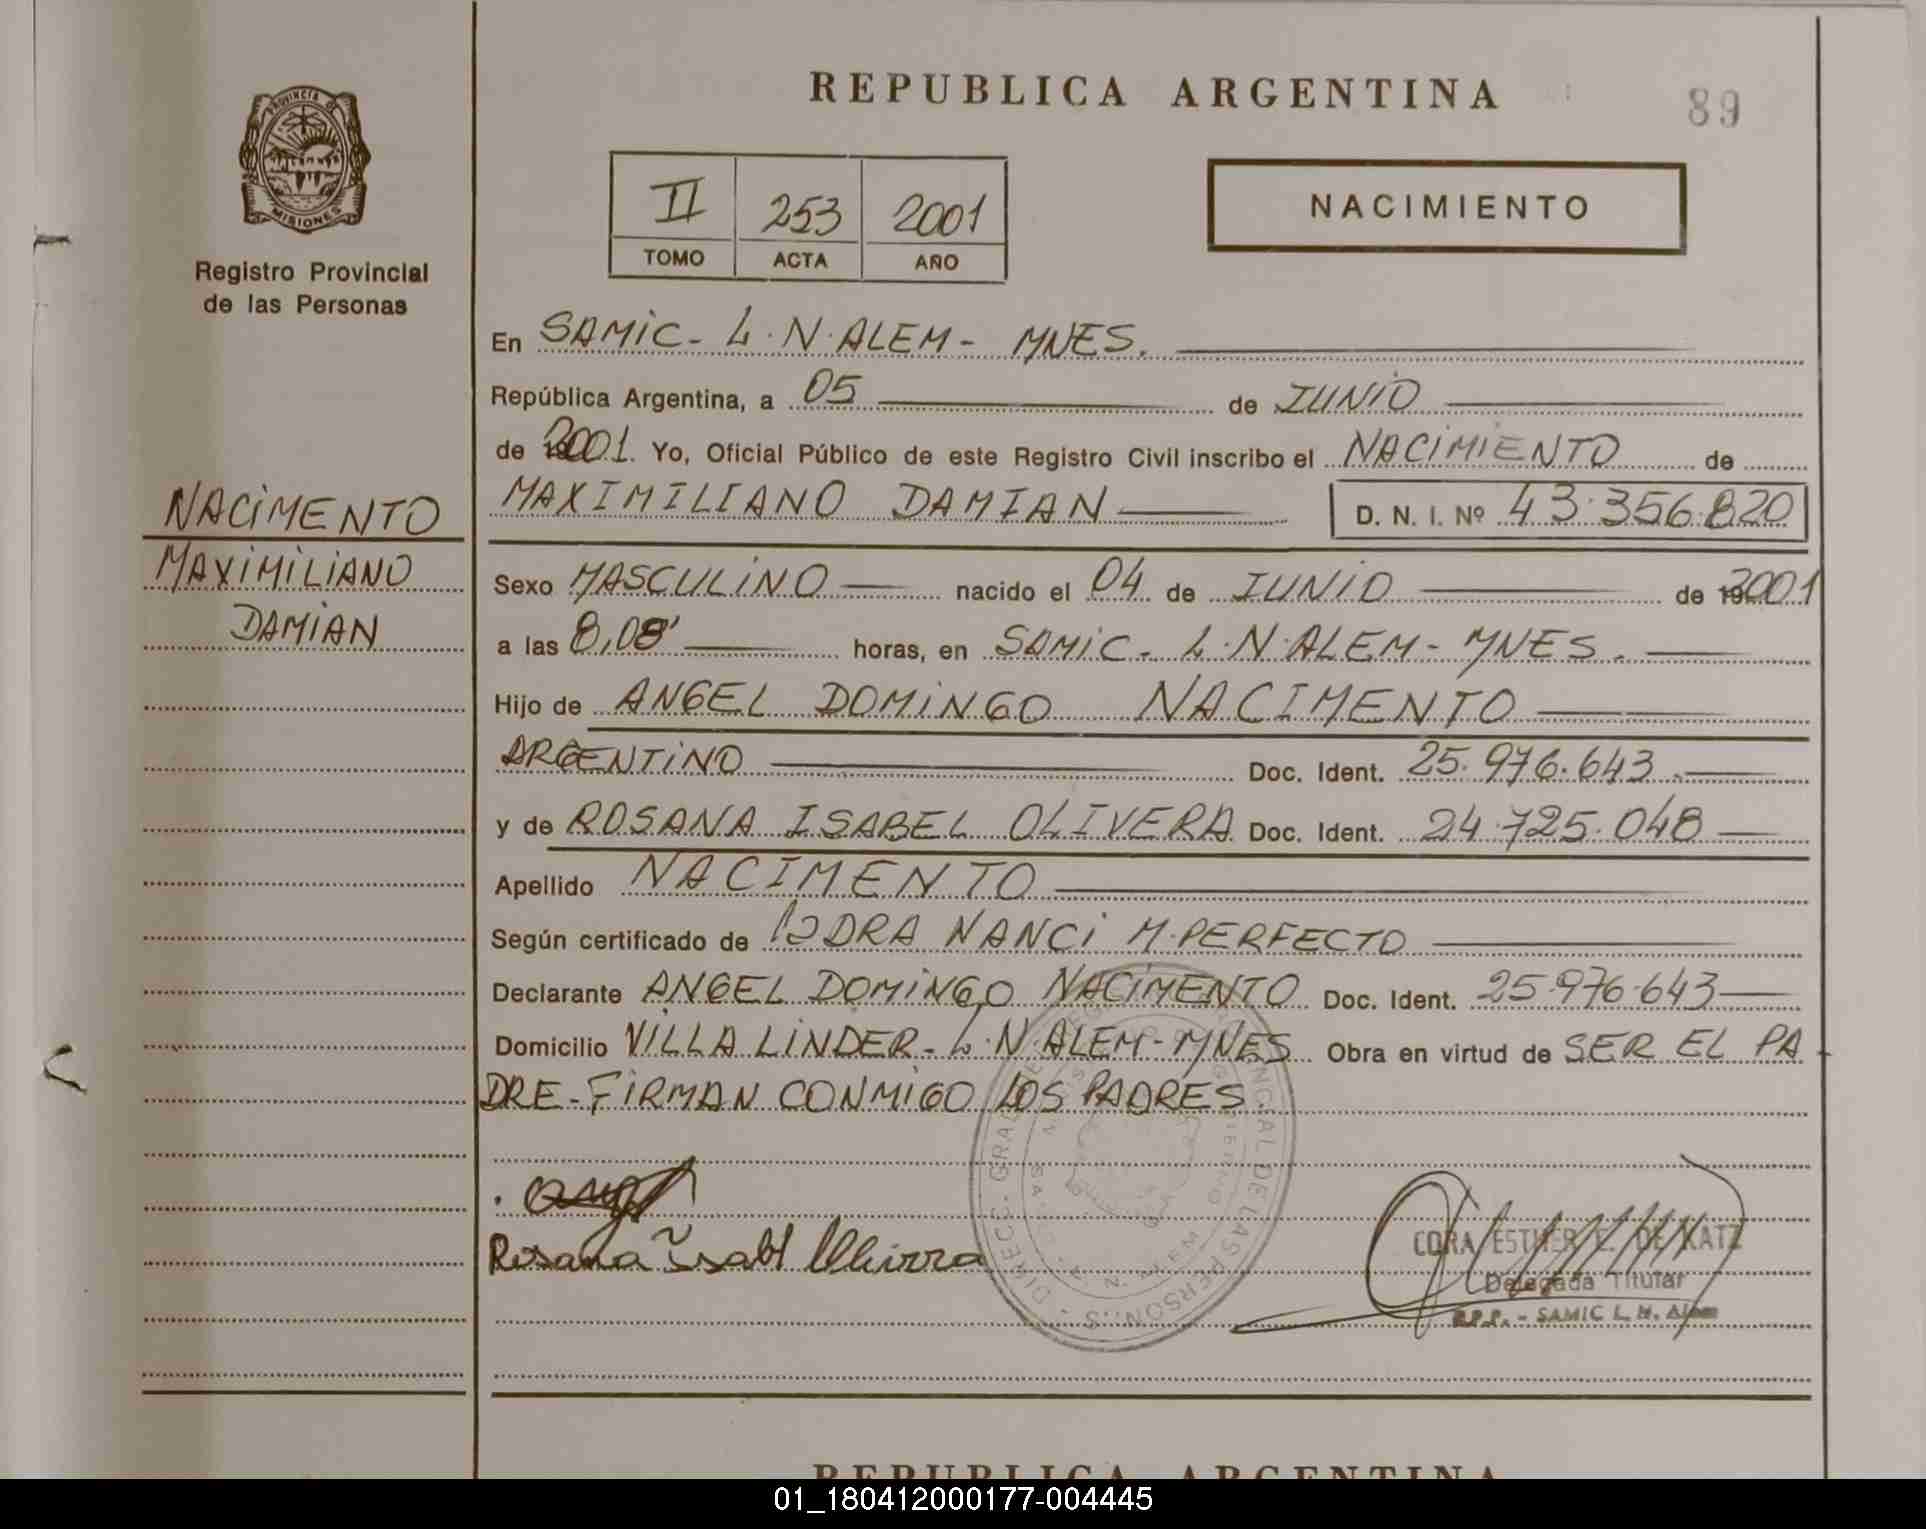 REPUBLICA ARGENTINA
89
PROVINCIA DE
MISIONES
Registro Provincial
de las Personas
II 253 2001
TOMO ACTA AÑO
NACIMIENTO
En SAMIC - L.N.ALEM - MNES.
República Argentina, a 05 de JUNIO
de 2001. Yo, Oficial Público de este Registro Civil inscribo el NACIMIENTO de
MAXIMILIANO DAMIAN D. N. I. Nº 43.356.820
NACIMENTO
MAXIMILIANO
DAMIAN
Sexo MASCULINO nacido el 04 de JUNIO de 2001
a las 8,08' horas, en SAMIC - L.N.ALEM - MNES.
Hijo de ANGEL DOMINGO NACIMENTO
ARGENTINO Doc. Ident. 25.976.643.
y de ROSANA ISABEL OLIVERA Doc. Ident. 24.725.048
Apellido NACIMENTO
Según certificado de la DRA NANCI M.PERFECTO
Declarante ANGEL DOMINGO NACIMENTO Doc. Ident. 25.976.643
Domicilio VILLA LINDER - L.N.ALEM - MNES Obra en virtud de SER EL PA
DRE - FIRMAN CONMIGO LOS PADRES.
Rosana Isabel Olivera
CORA ESTHER E. DE KATZ
Delegada Titular
R.P.P. - SAMIC L. N. Alem
REPUBLICA ARGENTINA
01_180412000177-004445